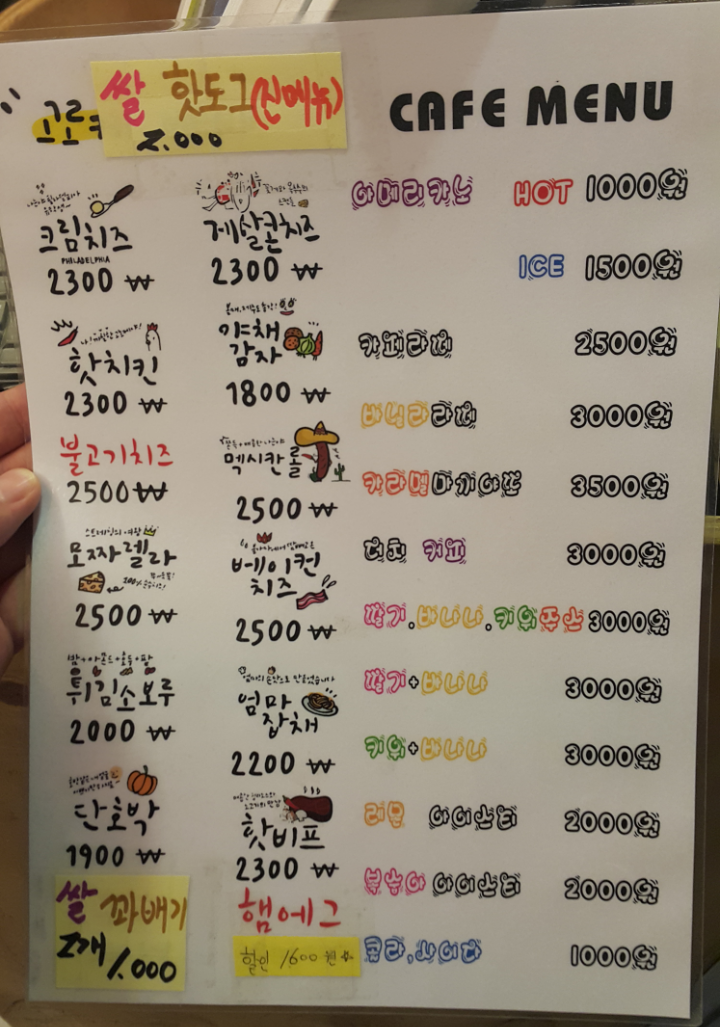 쌀 핫도그(신메뉴)
2.000
고로케
크림치즈
PHILADELPHIA
2300 ₩
핫치킨
2300 ₩
불고기치즈
2500 ₩
모짜렐라
2500 ₩
밤+아몬드+호두+팥
튀김소보루
2000 ₩
단호박
1900 ₩
쌀 꽈배기
2개 1.000
게살콘치즈
2300 ₩
야채
감자
1800 ₩
멕시칸롤
2500 ₩
베이컨
치즈
2500 ₩
엄마
잡채
2200 ₩
핫비프
2300 ₩
햄에그
할인 1600 원
CAFE MENU
아메리카노 HOT 1000원
ICE 1500원
카페라떼 2500원
바닐라라떼 3000원
카라멜마끼아또 3500원
더치 커피 3000원
딸기.바나나.키위쥬스 3000원
딸기+바나나 3000원
키위+바나나 3000원
레몬 아이스티 2000원
복숭아 아이스티 2000원
콜라,사이다 1000원